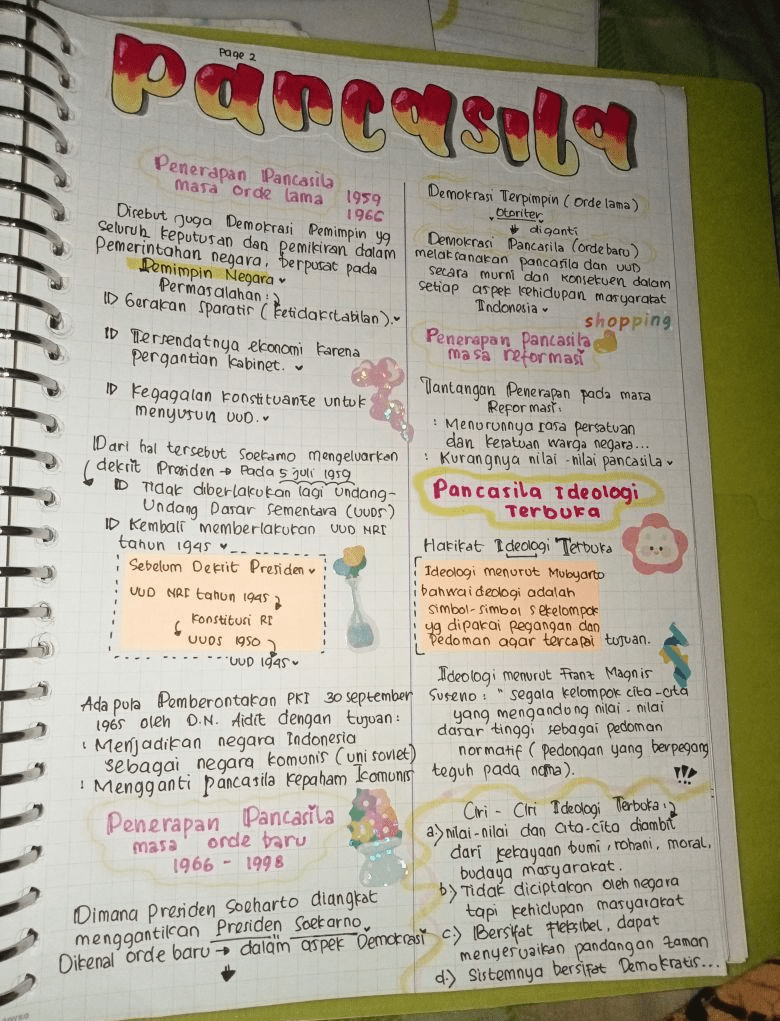 Page 2
Pancasila
Penerapan Pancasila
masa orde lama 1959
1966
Disebut juga Demokrasi Pemimpin yg
seluruh keputusan dan pemikiran dalam
Pemerintahan negara, berpusat pada
Pemimpin Negara
Permasalahan :
Gerakan sparatis (ketidakstabilan).
Tersendatnya ekonomi karena
pergantian kabinet.
Kegagalan konstituante untuk
menyusun UUD.
Dari hal tersebut Soekarno mengeluarkan
dekrit Presiden → Pada 5 juli 1959
Tidak diberlakukan lagi Undang-
Undang Dasar Sementara (UUDS)
Kembali memberlakukan UUD NRI
tahun 1945
Sebelum Dekrit Presiden
UUD NRI tahun 1945
Konstitusi RI
UUDS 1950
UUD 1945
Ada pula Pemberontakan PKI 30 september
1965 oleh D.N. Aidit dengan tujuan :
: Menjadikan negara Indonesia
sebagai negara komunis (uni soviet)
: Mengganti Pancasila kepaham Komunis
Penerapan Pancasila
masa orde baru
1966 - 1998
Dimana Presiden Soeharto diangkat
menggantikan Presiden Soekarno.
Dikenal orde baru → dalam aspek Demokrasi
Demokrasi Terpimpin (orde lama)
Otoriter
diganti
Demokrasi Pancasila (orde baru)
melaksanakan pancasila dan UUD
secara murni dan konsekuen dalam
setiap aspek kehidupan masyarakat
Indonesia
shopping
Penerapan Pancasila
masa reformasi
Tantangan Penerapan pada masa
Reformasi :
: Menurunnya rasa persatuan
dan kesatuan warga negara...
: Kurangnya nilai-nilai pancasila
Pancasila Ideologi
Terbuka
Hakikat Ideologi Terbuka
Ideologi menurut Mubyarto
bahwa ideologi adalah
simbol-simbol sekelompok
yg dipakai pegangan dan
Pedoman agar tercapai tujuan.
Ideologi menurut Franz Magnis
Suseno : " segala kelompok cita-cita
yang mengandung nilai-nilai
dasar tinggi sebagai pedoman
normatif (pedongan yang berpegang
teguh pada noma).
!!!
Ciri - Ciri Ideologi Terbuka :
a) nilai-nilai dan cita-cita diambil
dari kekayaan bumi, rohani, moral,
budaya masyarakat.
b) Tidak diciptakan oleh negara
tapi kehidupan masyarakat
c) Bersifat Fleksibel, dapat
menyesuaikan pandangan zaman
d.) Sistemnya bersifat Demokratis...